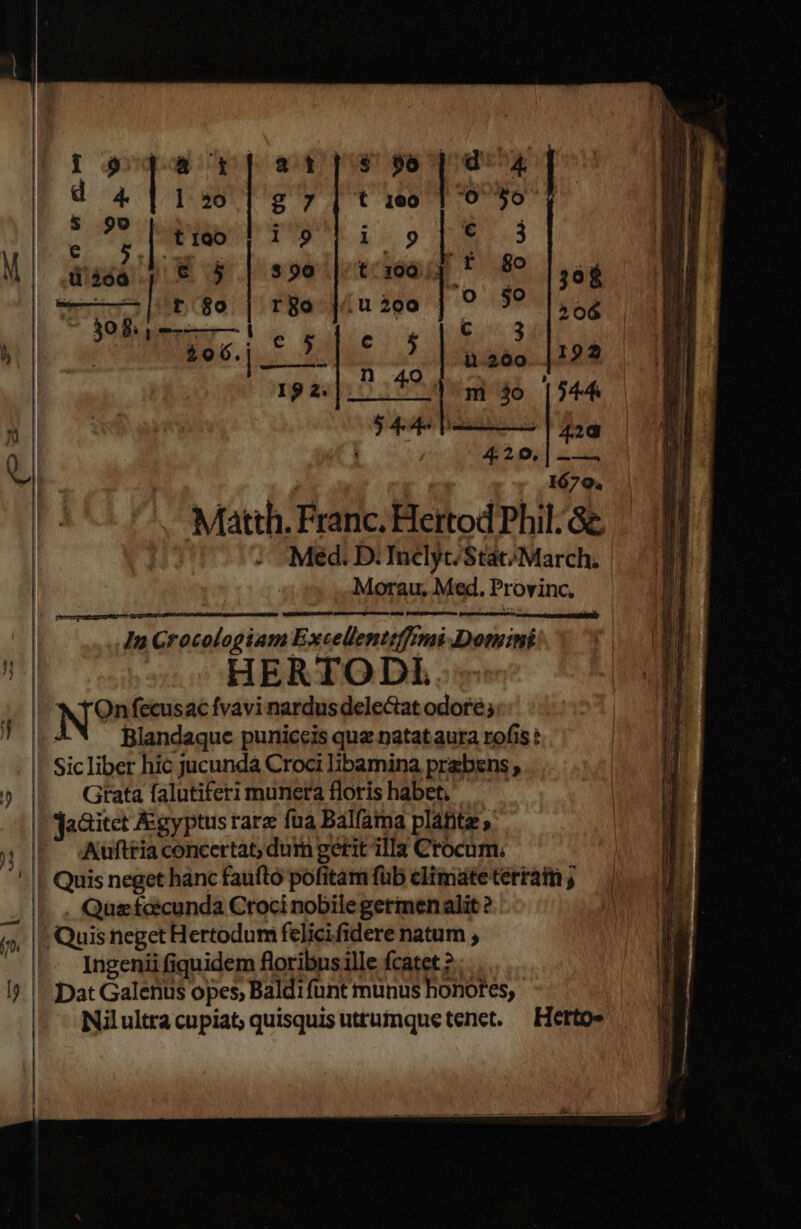 I 9 | a 1 | a 1 | s 90 | d 4
d 4 | l 20 | g 7 | t 100 | o 50
s 90 | t 100 | i 9 | i 9 | c 3
e 5 | e 5 | s 90 | t 100 | r 80 | 308
ü 200 | r 80 | r 80 | u 200 | o 50 | 206
308. | 206. | e 5 | e 5 | c 3 | 192
192. | n 40 | ü 200 | 544
544. | m 30 | 420
420.
1670.
Matth. Franc. Hertod Phil. &
Med. D. Inclyt. Stat. March.
Morau. Med. Provinc.
In Crocologiam Excellentiſſimi Domini
HERTODI.
NOn ſecus ac ſvavi nardus delectat odore;
Blandaque puniceis quæ natat aura roſis:
Sic liber hic jucunda Croci libamina præbens,
Grata ſalutiferi munera floris habet.
Jactitet Ægyptus raræ ſua Balſama plantæ,
Auſtria concertat, dum gerit illa Crocum.
Quis neget hanc fauſto poſitam ſub climate terram;
Quæ fœcunda Croci nobile germen alit?
Quis neget Hertodum felici ſidere natum,
Ingenii ſiquidem floribus ille ſcatet?
Dat Galenus opes, Baldi ſunt munus honores,
Nil ultra cupiat, quisquis utrumque tenet. Herto-